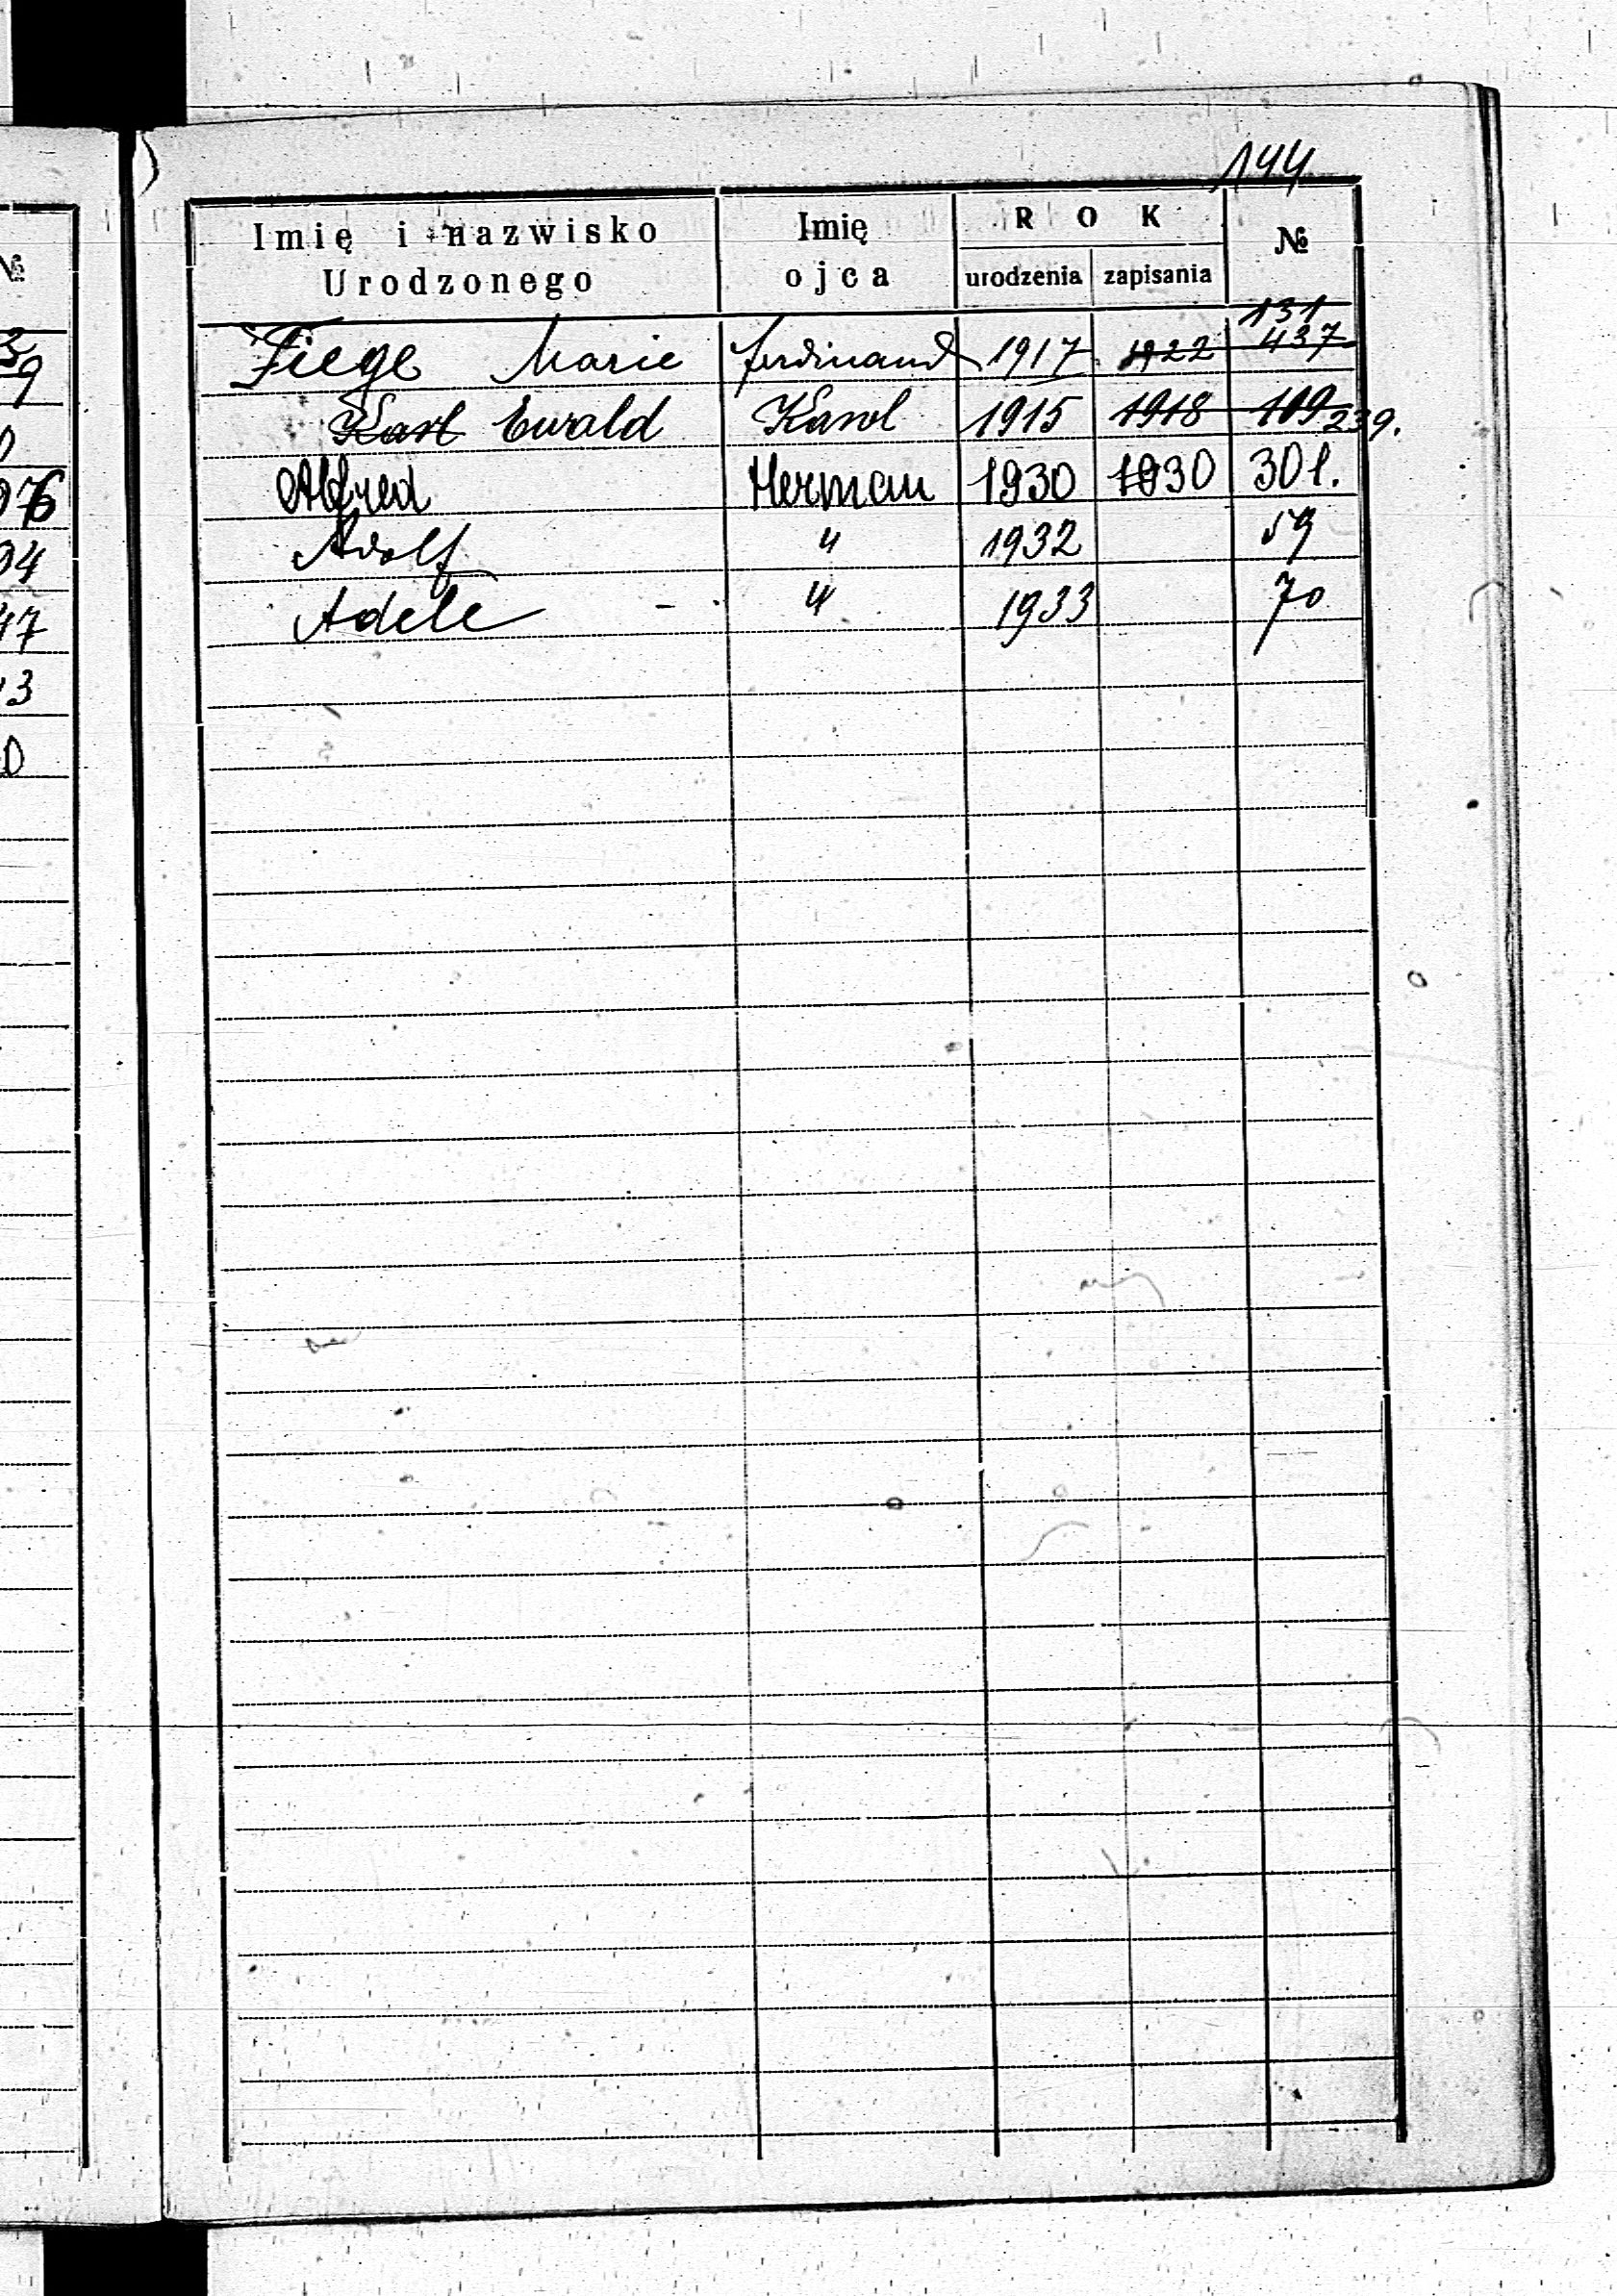 144
Imię i nazwisko Urodzonego
Imię ojca
R O K
urodzenia zapisania
№
131
Fiege Marie Ferdinand 1917 1922 437
Karl Ewald Karol 1915 1918 109 239.
Alfred Herman 1930 1930 301.
Adolf " 1932 59
Adele - " 1933 70
№
3
9
0
976
94
47
13
0